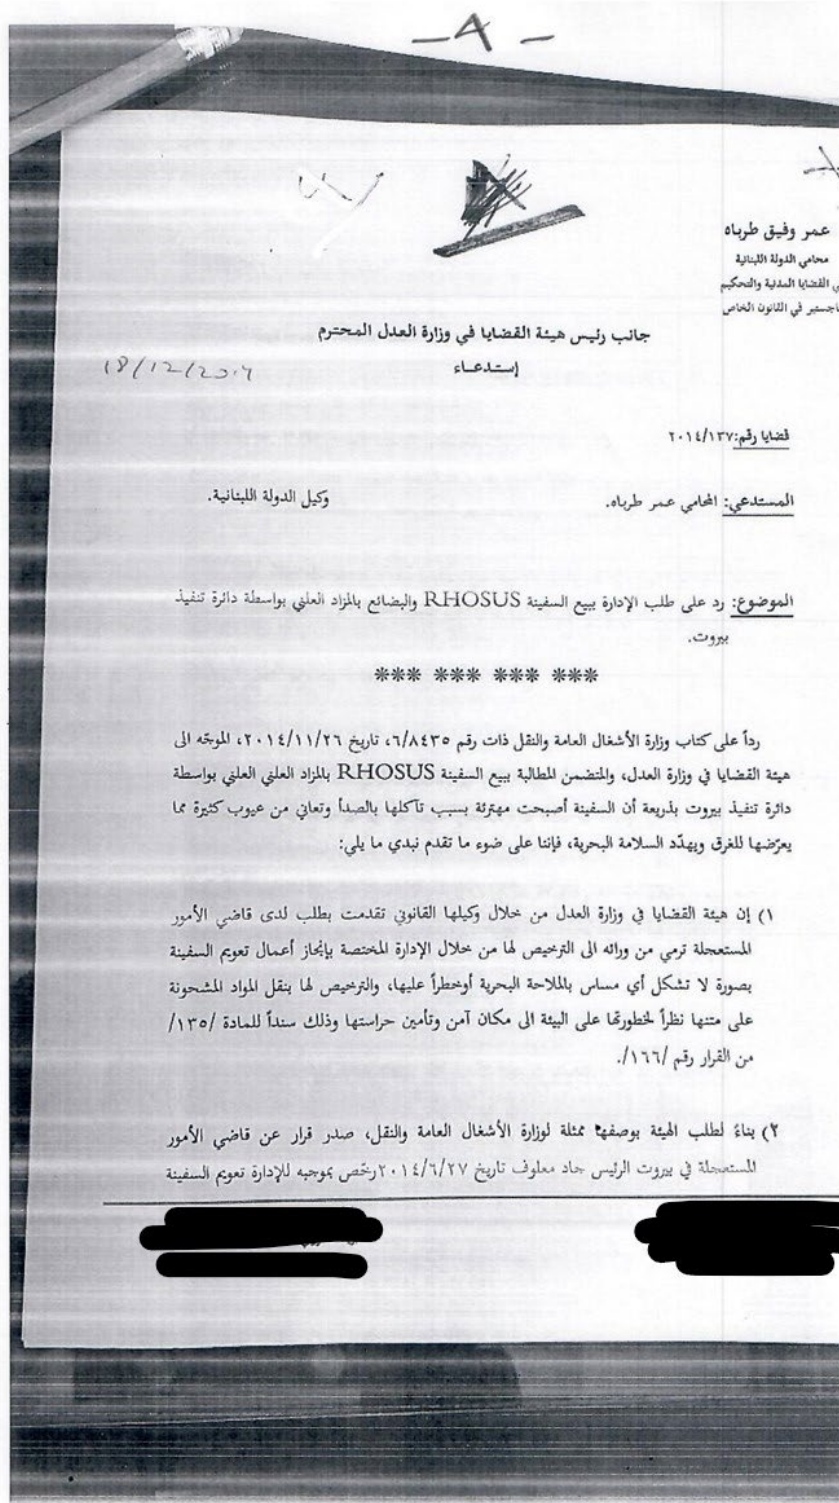 -4-
عمر وفيق طرباه
محامي الدولة اللبنانية
القضايا المدنية والتحكيم
ماجستير في القانون الخاص
جانب رئيس هيئة القضايا في وزارة العدل المحترم
إستدعاء
18/12/2014
قضايا رقم:٢٠١٤/١٣٧
المستدعي: المحامي عمر طرباه. وكيل الدولة اللبنانية.
الموضوع: رد على طلب الإدارة ببيع السفينة RHOSUS والبضائع بالمزاد العلني بواسطة دائرة تنفيذ
بيروت.
*** *** *** ***
رداً على كتاب وزارة الأشغال العامة والنقل ذات رقم ٦/٨٤٣٥، تاريخ ٢٠١٤/١١/٢٦، الموجّه الى
هيئة القضايا في وزارة العدل، والمتضمن المطالبة ببيع السفينة RHOSUS بالمزاد العلني العلني بواسطة
دائرة تنفيذ بيروت بذريعة أن السفينة أصبحت مهترئة بسبب تآكلها بالصدأ وتعاني من عيوب كثيرة مما
يعرّضها للغرق ويهدّد السلامة البحرية، فإننا على ضوء ما تقدم نبدي ما يلي:
١) إن هيئة القضايا في وزارة العدل من خلال وكيلها القانوني تقدمت بطلب لدى قاضي الأمور
المستعجلة ترمي من ورائه الى الترخيص لها من خلال الإدارة المختصة بإنجاز أعمال تعويم السفينة
بصورة لا تشكل أي مساس بالملاحة البحرية أوخطراً عليها، والترخيص لها بنقل المواد المشحونة
على متنها نظراً لخطورتها على البيئة الى مكان آمن وتأمين حراستها وذلك سنداً للمادة /١٣٥/
من القرار رقم /١٦٦/.
٢) بناءً لطلب الهيئة بوصفها ممثلة لوزارة الأشغال العامة والنقل، صدر قرار عن قاضي الأمور
المستعجلة في بيروت الرئيس جاد معلوف تاريخ ٢٠١٤/٦/٢٧رخّص بموجبه للإدارة تعويم السفينة